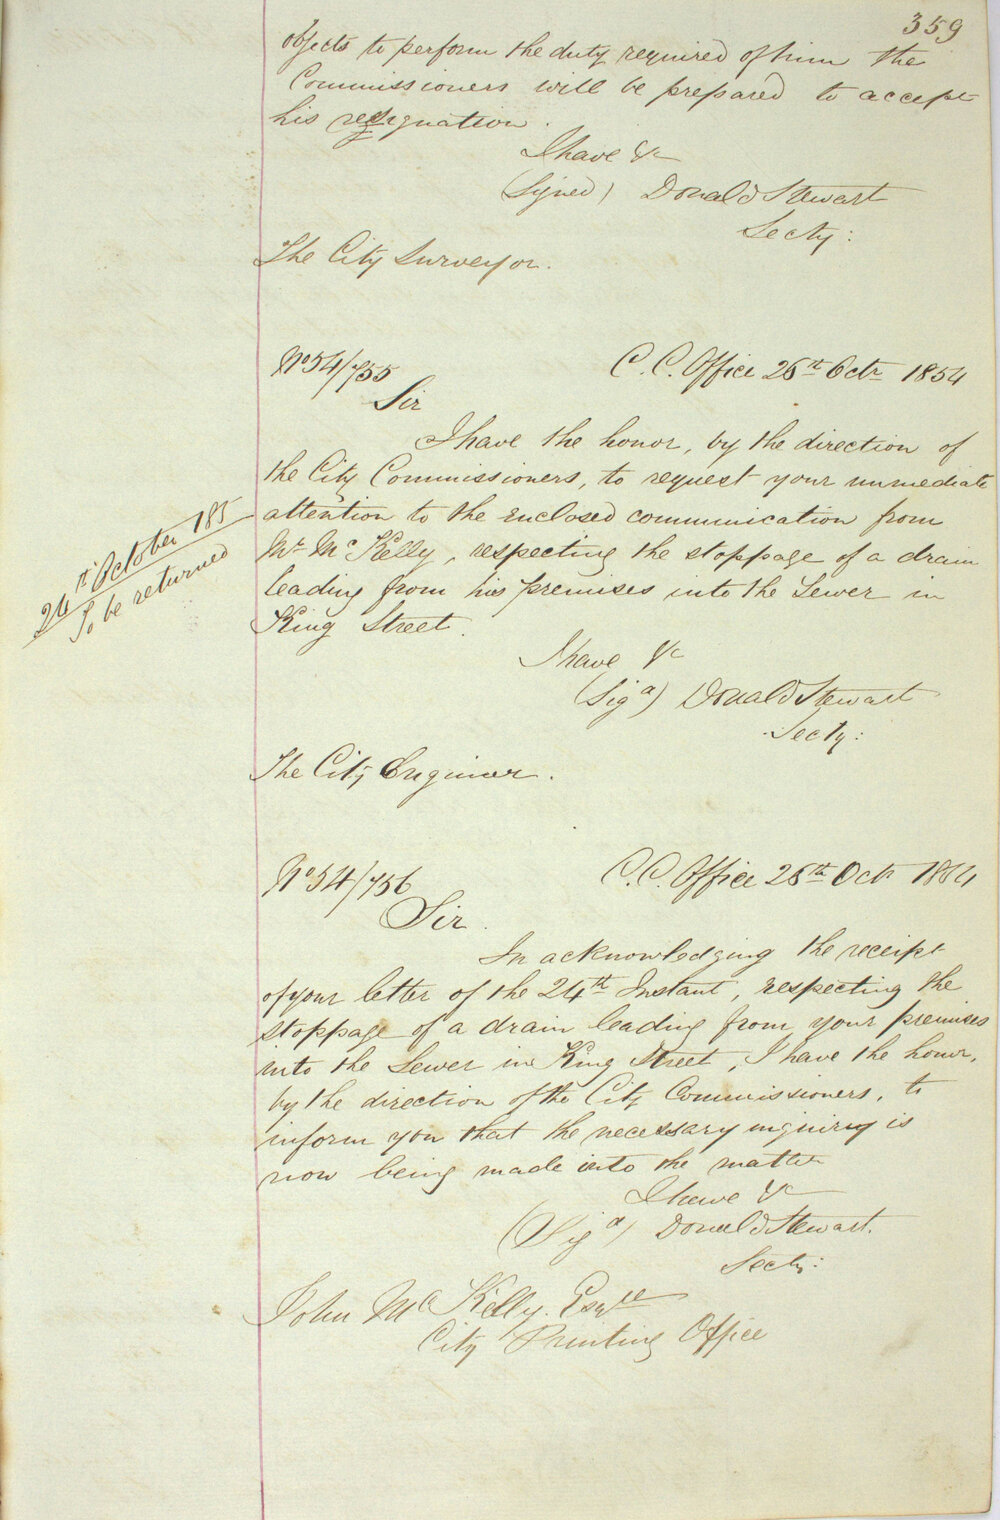 359
objects to perform the duty required of him the
Commissioners will be prepared to accept
his resignation.
I have &c
(Signed) Donald Stewart
Secty:
The City Surveyor.
No 54/755 C. C. Office 26th Octr 1854
Sir
I have the honor, by the direction of
the City Commissioners, to request your immediate
attention to the enclosed communication from
Mr McKelly, respecting the stoppage of a drain
leading from his premises into the Sewer in
King Street.
24th October 185
To be returned
I have &c
(Sigd) Donald Stewart
Secty:
The City Engineer.
No 54/756 C. C. Office 26th Octr 1854
Sir.
In acknowledging the receipt
of your letter of the 24th Instant, respecting the
stoppage of a drain leading from your premises
into the Sewer in King Street, I have the honor,
by the direction of the City Commissioners, to
inform you that the necessary inquiry is
now being made into the matter
I have &c
(Sigd) Donald Stewart.
Secty:
John McKelly. Esqre
City Printing Office